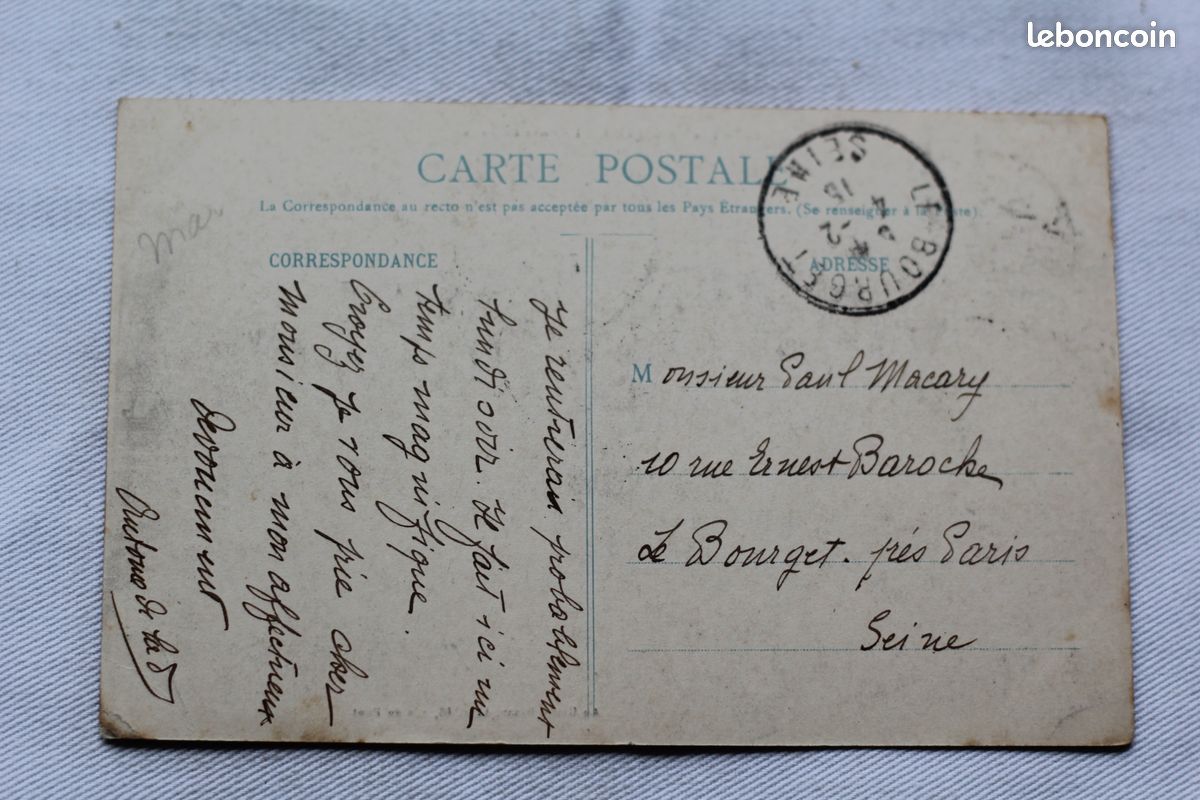 leboncoin
CARTE POSTALE
La Correspondance au recto n'est pas acceptée par tous les Pays Étrangers. (Se renseigner à la Poste).
CORRESPONDANCE
ADRESSE
LE BOURGET
SEINE
Je rentrerai probablement
lundi soir. Il fait ici un
temps magnifique.
Croyez je vous prie cher
Monsieur à mon affectueux
dévouement
Monsieur Paul Macary
10 rue Ernest Baroche
Le Bourget. près Paris
Seine